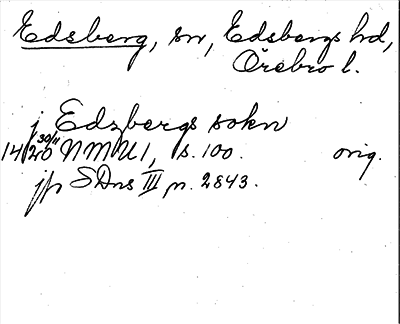 Edsberg, sn, Edsbergs hd,
Örebro l.
j Edzbergs sokn
14 30/11 20 NMU 1, s. 100. orig.
jfr SDns III, n. 2843.